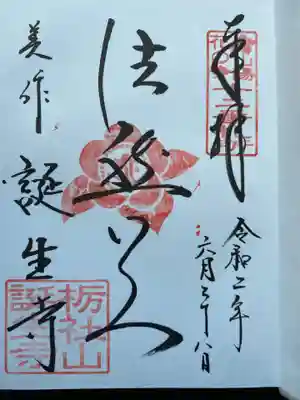 奉拝
令和二年
六月二十八日
法然上人
美作
誕生寺
栃社山
誕生寺